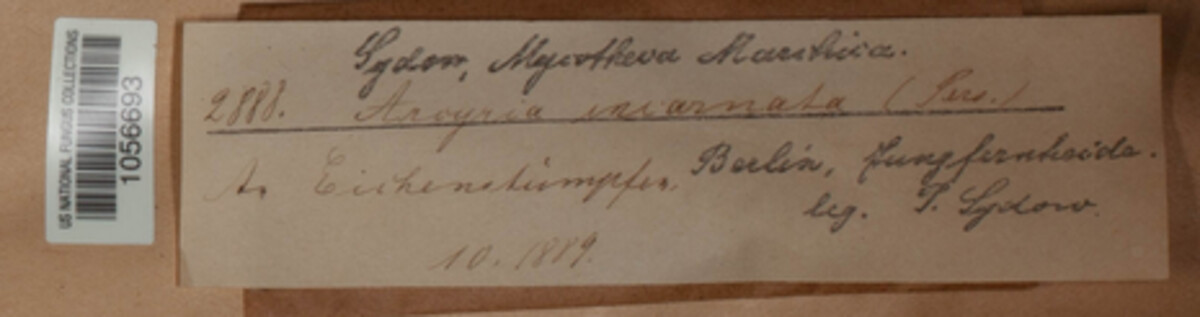 US NATIONAL FUNGUS COLLECTIONS
1056693
Sydow, Mycotheca Marchica.
2888. Arcyria incarnata (Pers.)
An Eichenstümpfen. Berlin, Jungfernheide.
leg. P. Sydow.
10. 1889.